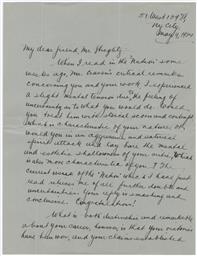 51 West 129 St
N.Y. City
May 9, 1924
My dear friend, Mr.
When I read in the "Nation" some
weeks ago, Mr. critical remarks
concerning you and your work, I experienced
a slight mental tremor due, the feeling of
uncertainty as to what you would do. Would
you treat him with stoical scorn and contempt
which is characteristic of your nature, or
would you in an aggressive and satirical
spirit attack and lay bare the mental
and esthetic shallowness of your critic, that
is also most characteristic of you? The
current issue of the "Nation" which I have just
read relieves me of all further doubts and
uncertainties. Your reply is smashing and
conclusive. Congratulation!
What is both distinctive and remarkable
about your career, however, is that your victories
have been won, and your claims established